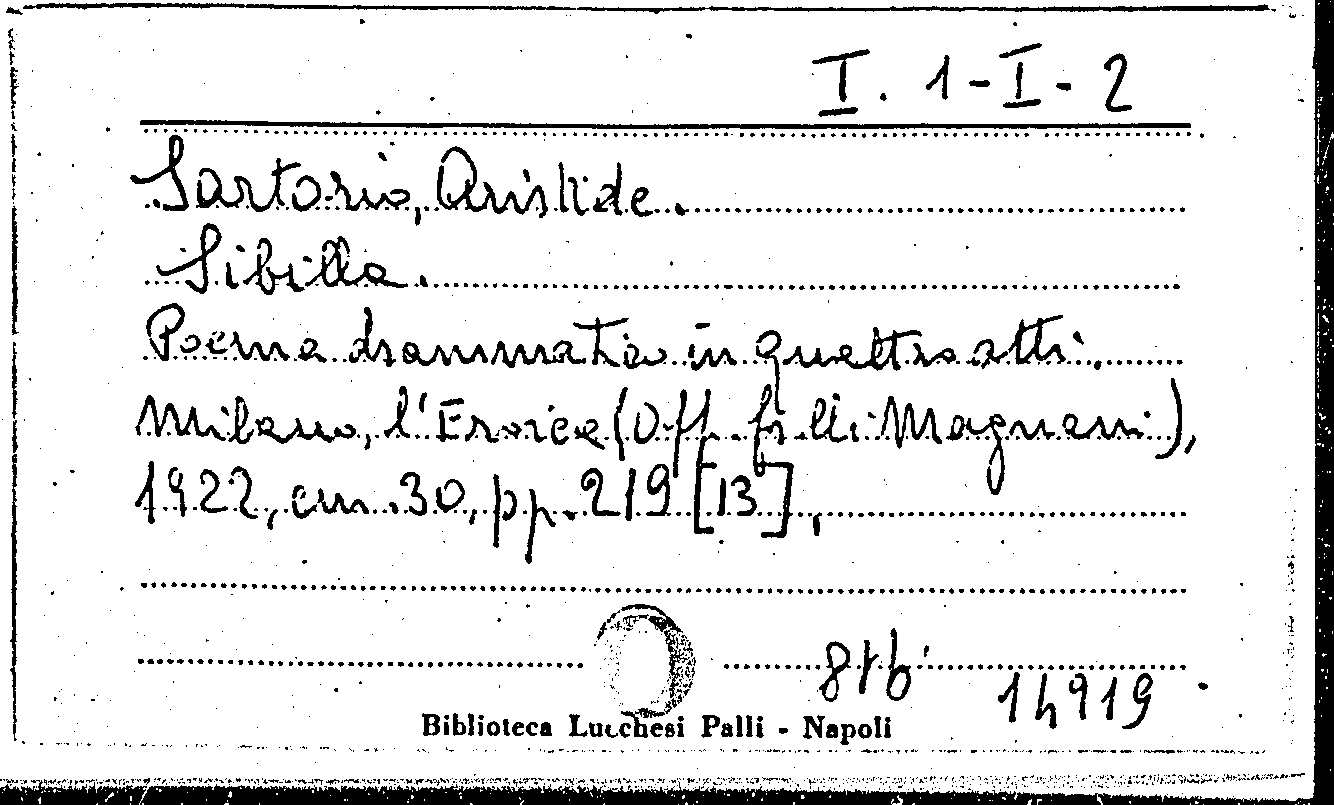 I. 1-I-2
Sartorio, Aristide.
Sibilla.
Poema drammatico in quattro atti.
Milano, l'Eroica (Off. f.lli Magnani),
1922, cm. 30, pp. 219 [13],
14919
Biblioteca Lucchesi Palli - Napoli